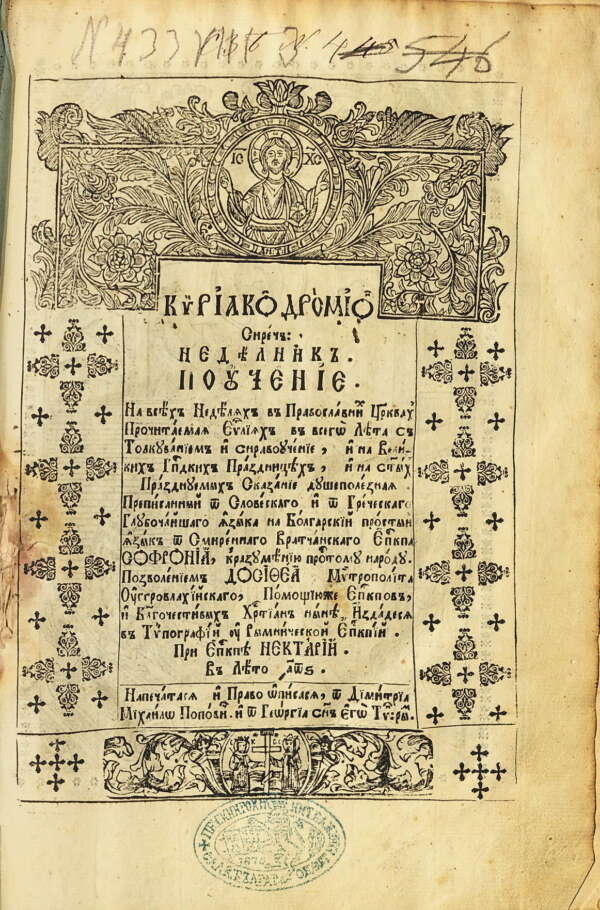 N 433
546
ІС ХС
КѴРІАКОДРОМІОН
Сирѣчь:
НЕДѢЛНИКЪ.
ПОУЧЕНІЕ.
На всѣхъ Недѣляхъ въ Православнїѧ Цр҃квах
Прочитаемїѧ Еѵ҃лїѧхъ въ всегѡ Лѣта съ
Толкуванїемъ и сиравоученїе, и на Вели-
кихъ Гпⷭ҇дкихъ Праздницѣхъ, и на ст҃ыхъ
Празднуемыхъ Сказанїе душеполезная.
Преписанный ѿ Словескаго, и ѿ Греческаго
Глубочаишаго ꙗзыка на Болгарскїй простый
ꙗзыкъ ѿ Смиреннаго Вратчанскаго Еп҃кпа
СОФРОНІА, кразумѣнїю простому народу.
Позволенїемъ ДОСІѲЕА Мѵтрополїта
Оуггровлахїйскаго, Помощїюже Еп҃кповъ,
и Бл҃гочестивыхъ Хрⷭ҇тїанъ нынѣ, Издадеся
въ Тѵпографїй оу Рымнической Еп҃кпїй.
При Еп҃кпѣ НЕКТАРІЙ.
Въ Лѣто ҂аѡѕ.
Напечатася и Право ѡписася, ѿ Димитрїа
Мїхаилѡ Поповїⷱ. и ѿ Геѡргїа сн҃ъ Егѡ Тѵ: Ры: